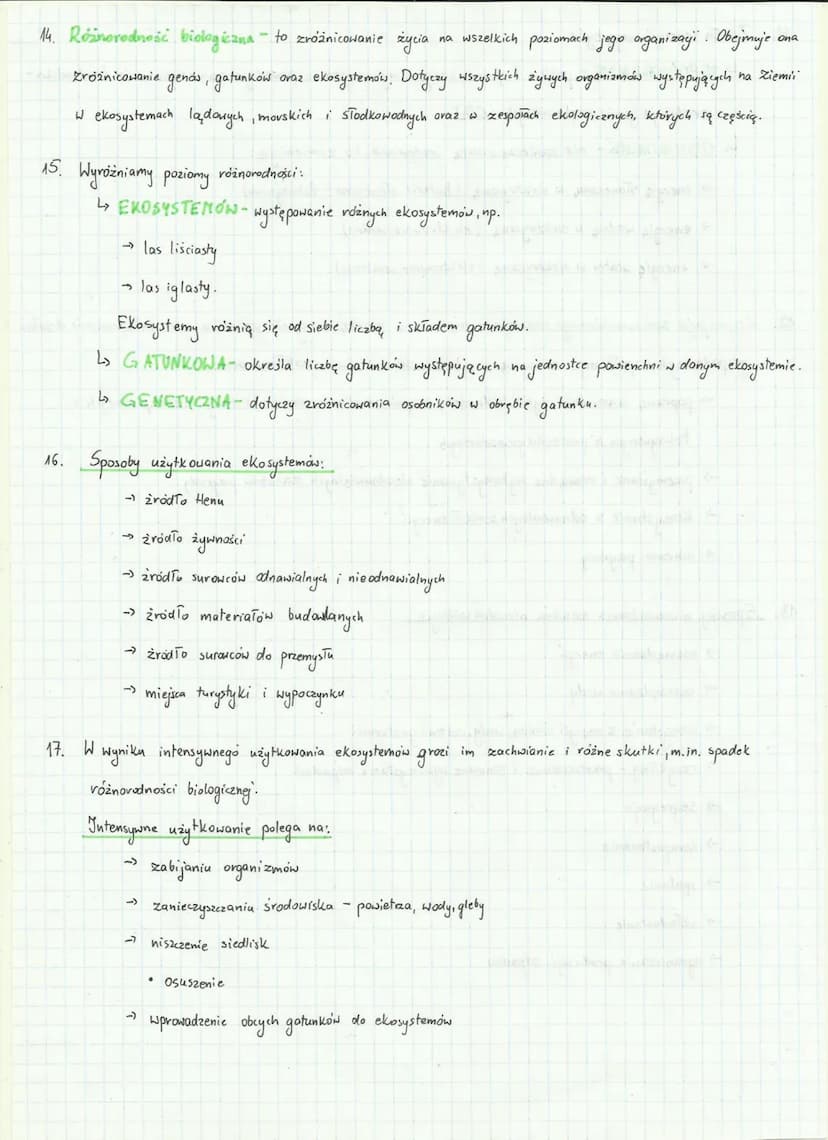 14. Różnorodność biologiczna - to zróżnicowanie życia na wszelkich poziomach jego organizacji. Obejmuje ona
zróżnicowanie genów, gatunków oraz ekosystemów. Dotyczy wszystkich żywych organizmów występujących na Ziemi
w ekosystemach lądowych, morskich i słodkowodnych oraz w zespołach ekologicznych, których są częścią.
15. Wyróżniamy poziomy różnorodności:
↳ EKOSYSTEMÓW - występowanie różnych ekosystemów, np.
→ las liściasty
→ las iglasty.
Ekosystemy różnią się od siebie liczbą i składem gatunków.
↳ GATUNKOWA - określa liczbę gatunków występujących na jednostce powierzchni w danym ekosystemie.
↳ GENETYCZNA - dotyczy zróżnicowania osobników w obrębie gatunku.
16. Sposoby użytkowania ekosystemów:
→ źródło tlenu
→ źródło żywności
→ źródło surowców odnawialnych i nieodnawialnych
→ źródło materiałów budowlanych
→ źródło surowców do przemysłu
→ miejsca turystyki i wypoczynku
17. W wyniku intensywnego użytkowania ekosystemów grozi im zachwianie i różne skutki, m.in. spadek
różnorodności biologicznej.
Intensywne użytkowanie polega na:
→ zabijaniu organizmów
→ zanieczyszczaniu środowiska - powietrza, wody, gleby
→ niszczenie siedlisk
• osuszenie
→ wprowadzenie obcych gatunków do ekosystemów